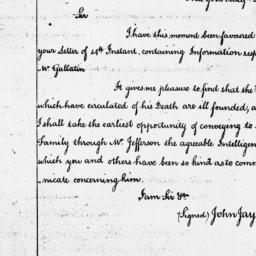 Sir
I have this moment been favoured
your Letter of 4th Instant, containing Information resp
Mr Gallatin
It gives me pleasure to find that the
which have circulated of his Death are ill founded, a
I shall take the earliest opportunity of conveying to
Family through Mr Jefferson the agreable Intelligen
which you and others have been so kind as to comm
nicate concerning him.
I am Sir &c
(Signed) John Jay